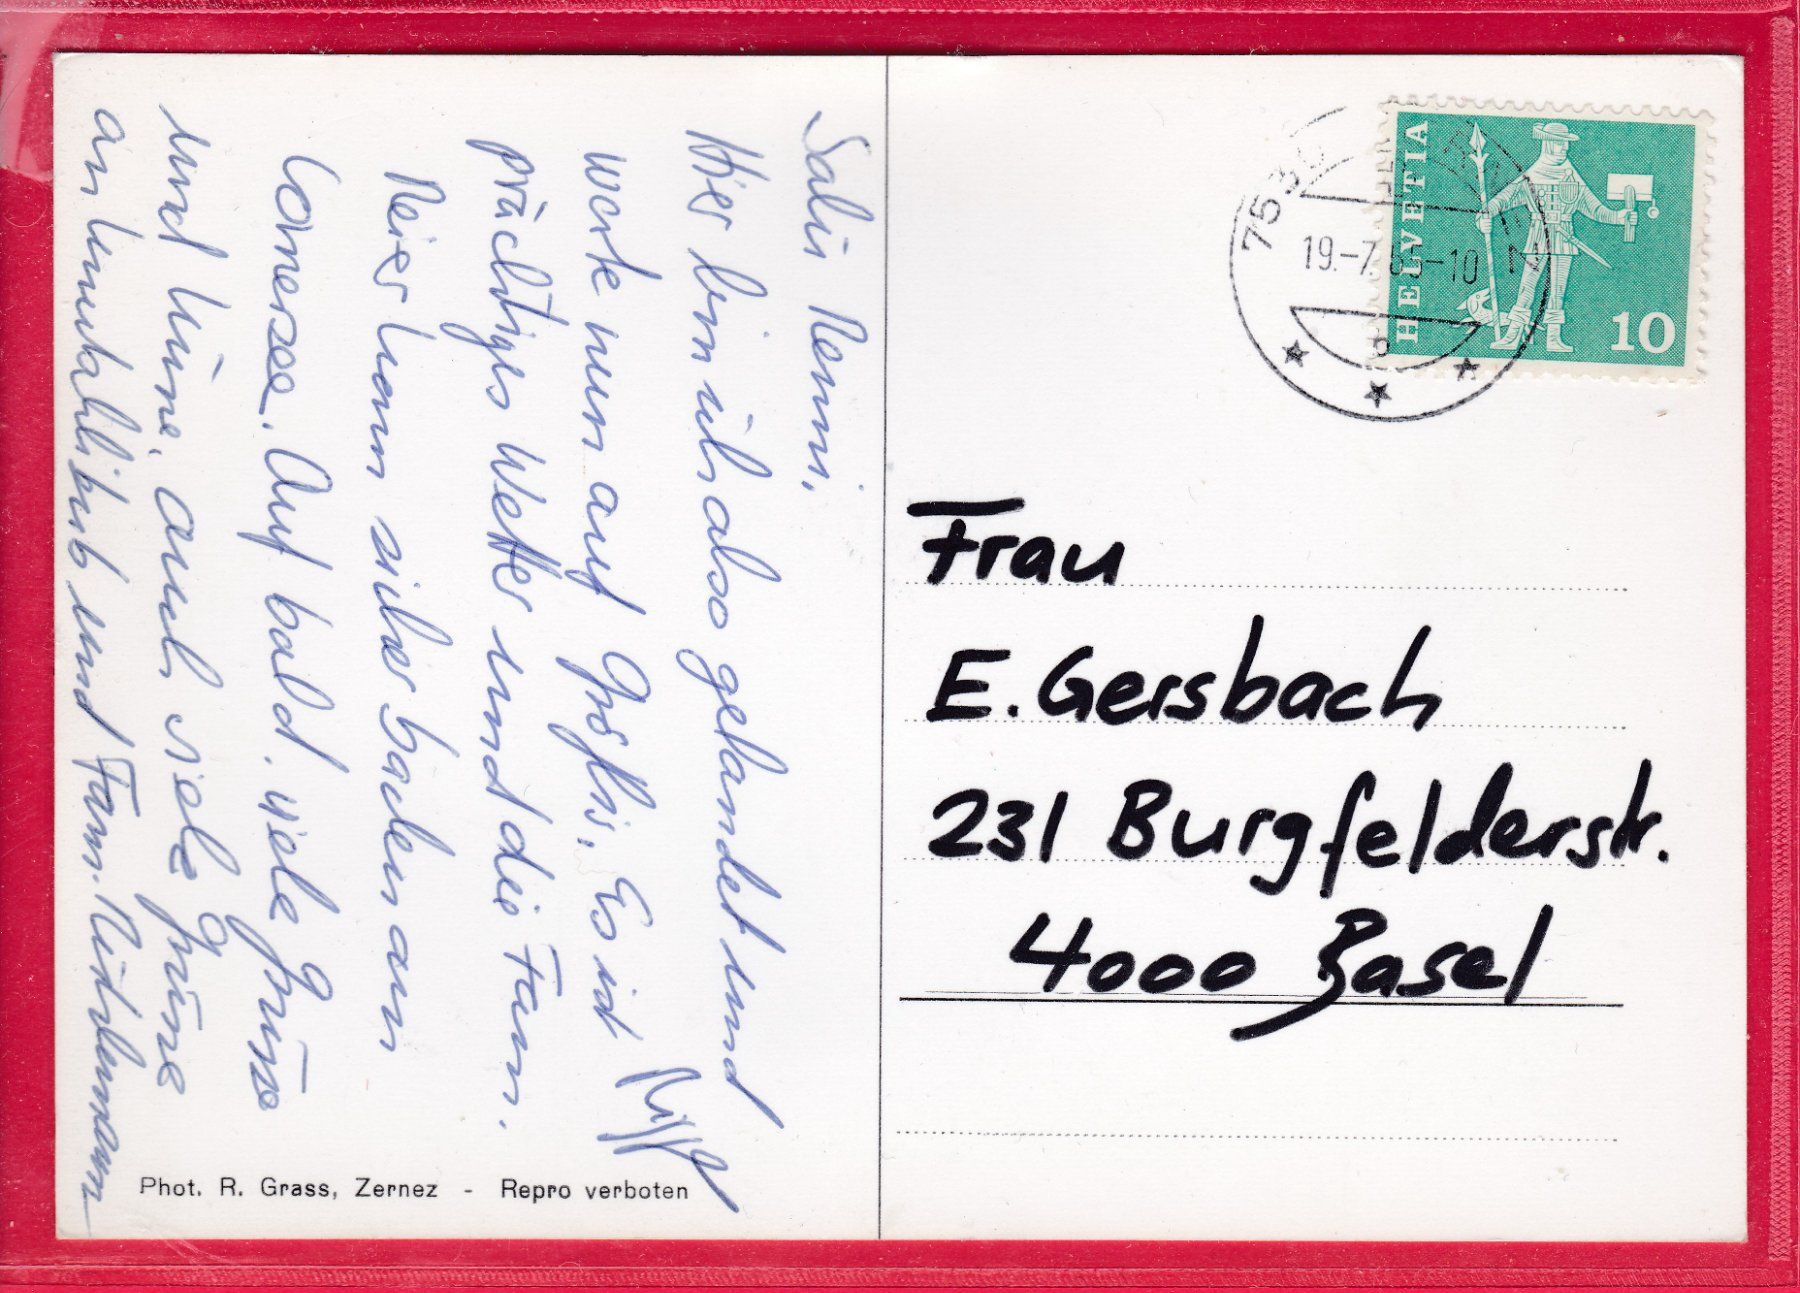 Salü Nenni,
Hier bin ich also gelandet und
warte nun auf Es ist
prächtiges Wetter und die Fam.
Meier kann sicher baden am
Comersee. Auf bald. viele Grüsse
und Küne. auch viele Grüsse
an und Fam.
Phot. R. Grass, Zernez - Repro verboten
HELVETIA
10
75
19.-7. 65-10
Frau
E. Gersbach
231 Burgfelderstr.
4000 Basel